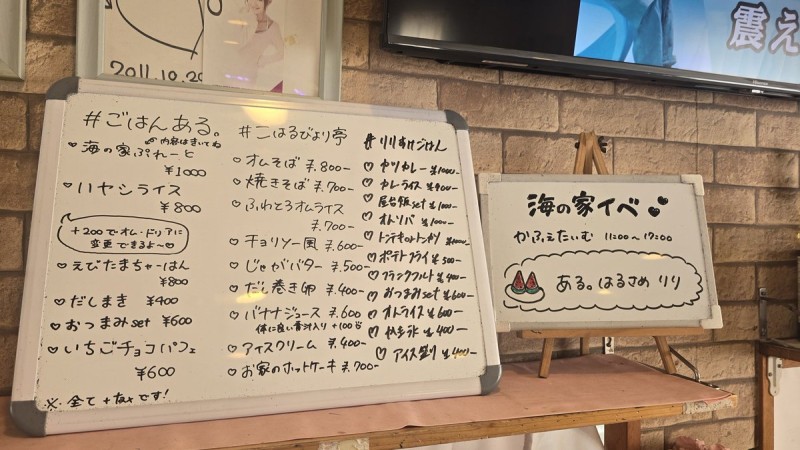 2011.10.29
震え
#ごはんある。
・海の家ぷれーと
内容はきいてね
¥1000
・ハヤシライス
¥800
+200でオム・ドリアに
変更できるよ〜♡
♡えびたまちゃーはん
¥800
♡だしまき ¥400
♡おつまみset ¥600
♡いちごチョコパフェ
¥600
※全て+taxです!
#こはるびより亭
♡オムそば ¥.800-
♡焼きそば ¥.700-
♡ふわとろオムライス
¥.700-
♡チョリソー風 ¥.600-
♡じゃがバター ¥.500-
♡だし巻き卵 ¥.400-
♡バナナジュース ¥.600
体に良い青汁入り+100
♡アイスクリーム ¥.400-
♡お家のホットケーキ ¥.700-
#リリすけごはん
♡カツカレー ¥1000-
♡カレーライス ¥900-
♡屋台飯set ¥1000-
♡オムソバ ¥1000-
♡ポテトフライ ¥500-
♡フランクフルト ¥400-
♡おつまみset ¥600-
♡オムライス ¥600-
♡やき氷 ¥400-
♡アイス盛り ¥400-
海の家イベ♥
かふぇたいむ 11:00~17:00
ある。はるさめ リリ